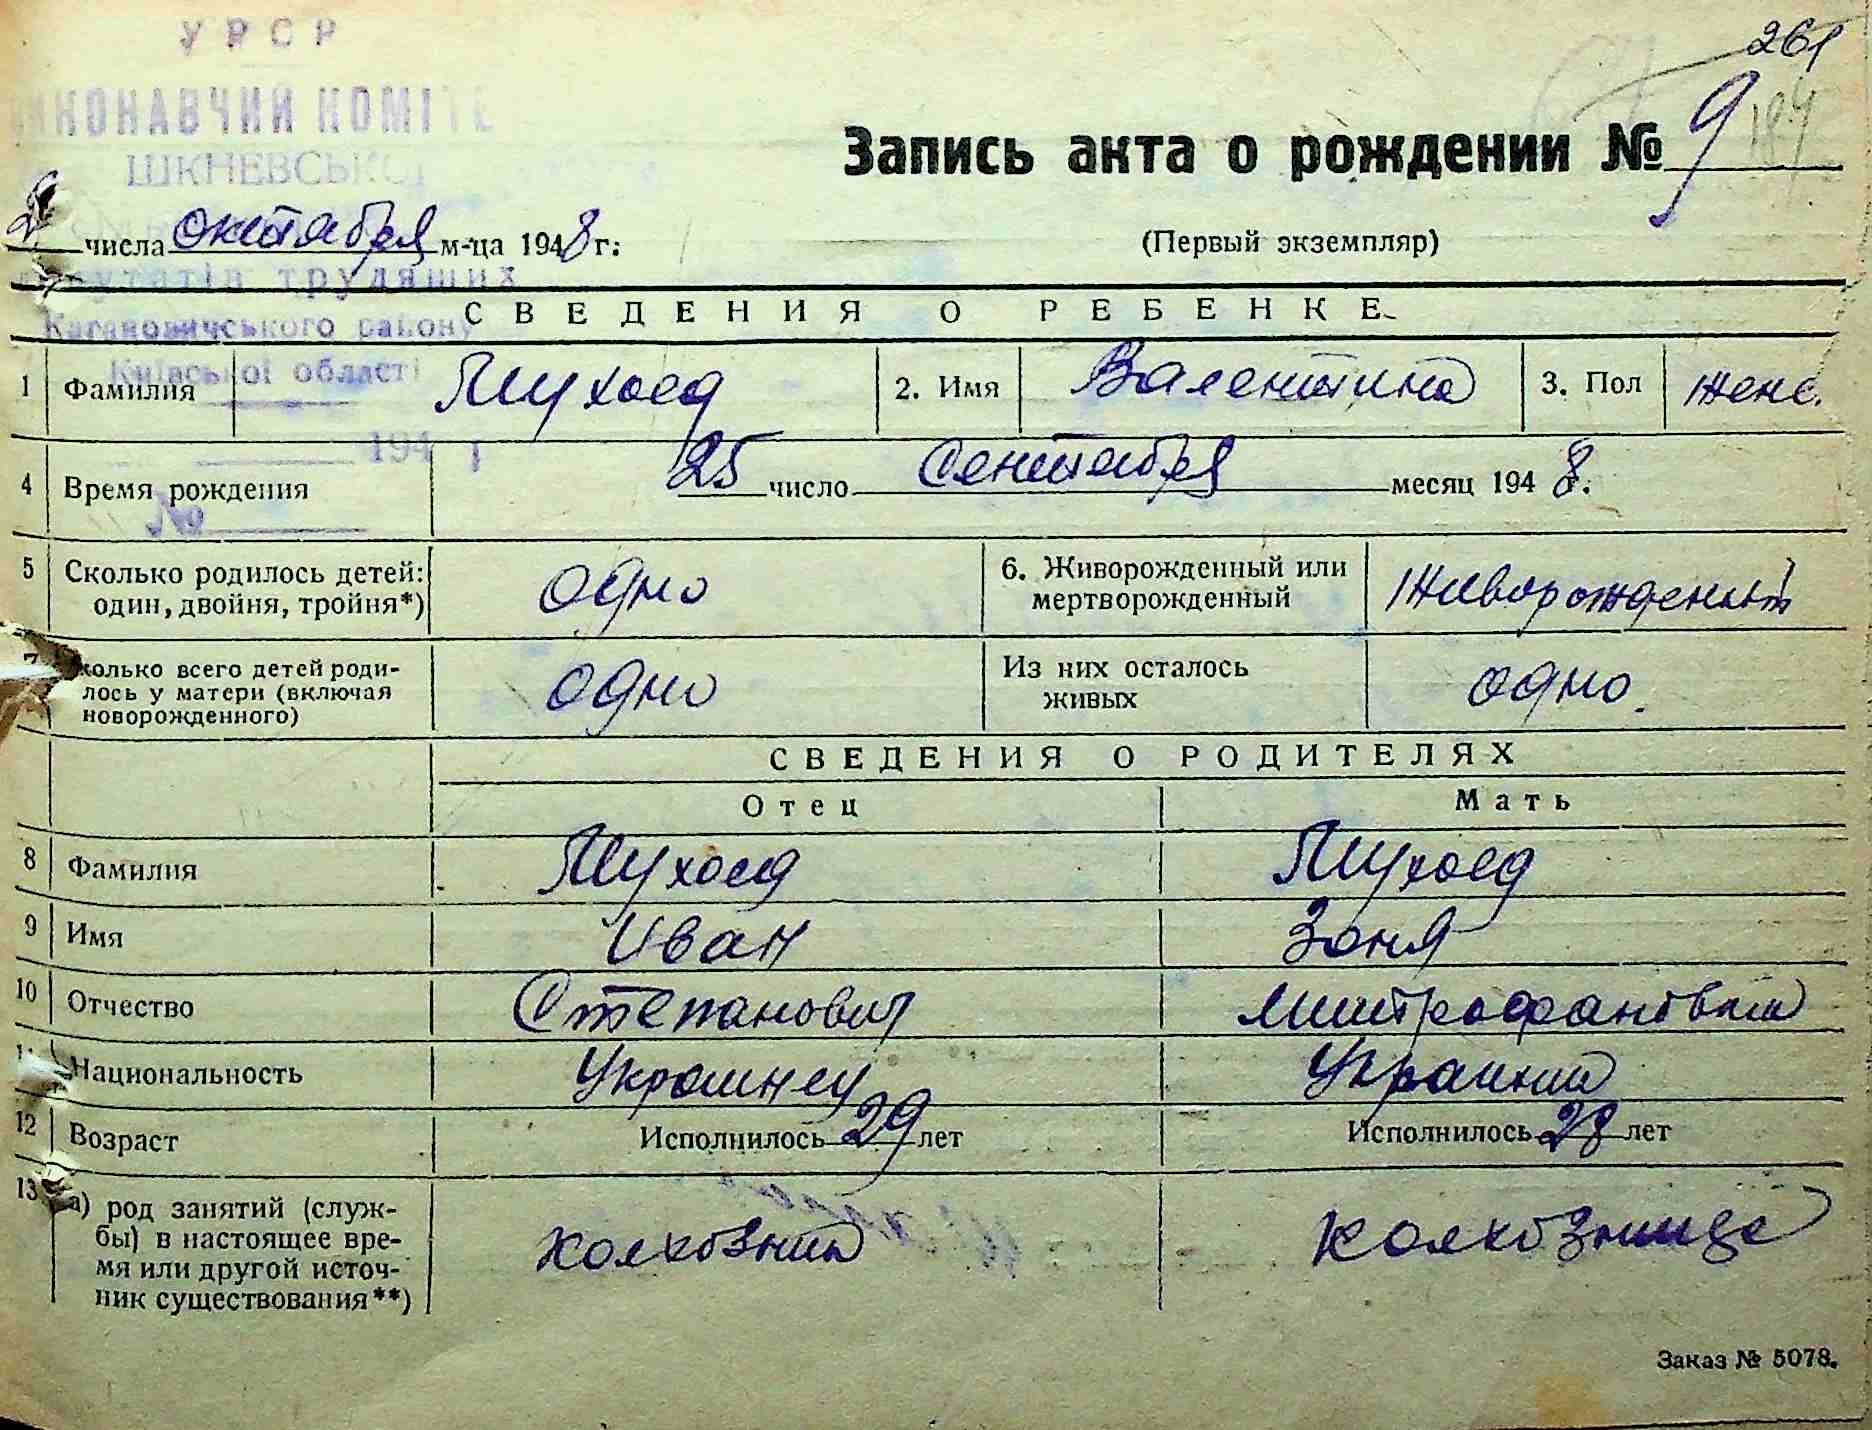 УРСР
261
ИКОНАВЧИЙ КОМІТЕ
Запись акта о рождении № 9
184
ШКНЕВСЬКОЇ
2 числа октабря м-ца 1948 г.
(Первый экземпляр)
путатів трудящих
СВЕДЕНИЯ О РЕБЕНКЕ
Кагановичського району
Київської області
1 Фамилия Мухоед 2. Имя Валентина 3. Пол женс.
194 р
4 Время рождения 25 число Сентабря месяц 1948.
№
5 Сколько родилось детей: один, двойня, тройня*) одно 6. Живорожденный или мертворожденный Живорожденый
7 колько всего детей роди-
лось у матери (включая
новорожденного) одно Из них осталось живых одно.
СВЕДЕНИЯ О РОДИТЕЛЯХ
Отец Мать
8 Фамилия Мухоед Мухоед
9 Имя Иван Зоня
10 Отчество Степанович Митрофановна
11 Национальность Украинец Украинка
12 Возраст Исполнилось 29 лет Исполнилось 28 лет
13 а) род занятий (служ-
бы) в настоящее вре-
мя или другой источ-
ник существования**) колхозник колхозница
Заказ № 5078.